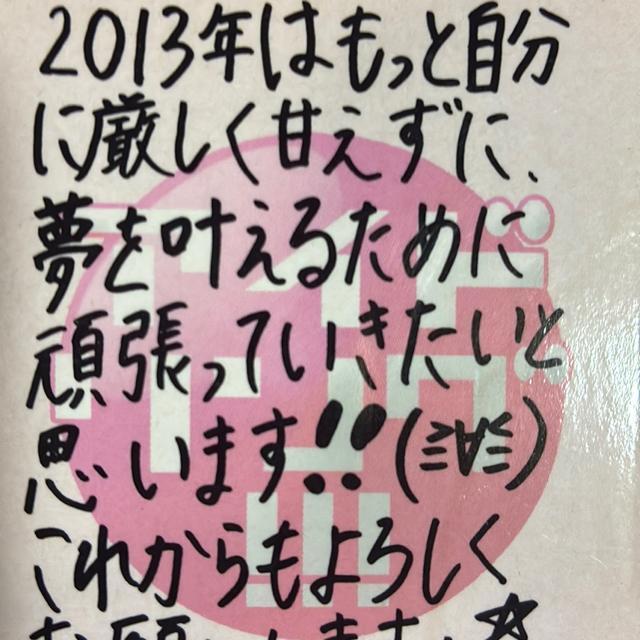 2013年はもっと自分
に厳しく甘えずに、
夢を叶えるために
頑張っていきたいと
思います!!(≧∀≦)
これからもよろしく
お願いします☆